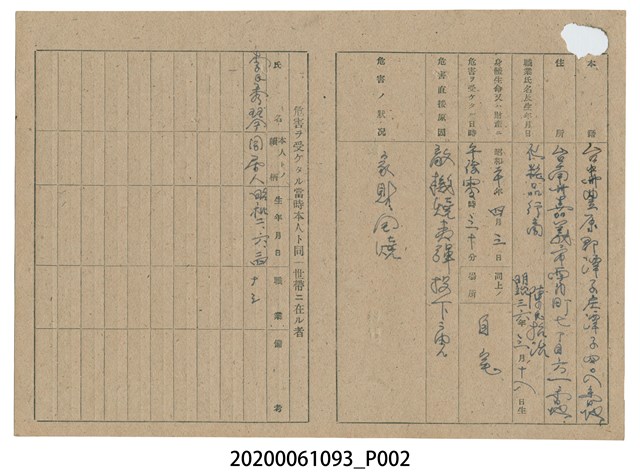 本籍 台中州豐原郡潭子庄潭子四〇八番地
住所 台南州嘉義市西門町七丁目六一番地
職業氏名及生年月日 化粧品行商 明治三六年三月十八日生
身體生命又ハ財産ニ危害ヲ受ケタル日時 昭和二十年四月三日 午後零時三十分
同上ノ場所 自宅
危害直接原因 敵機焼夷弾投下
危害ノ狀況 家財全焼
危害ヲ受ケタル當時本人ト同一世帶ニ在ル者
氏名 本人トノ續柄 生年月日 職業 備考
李氏秀琴 同居人 昭和二、六、二四 ナシ
20200061093_P002